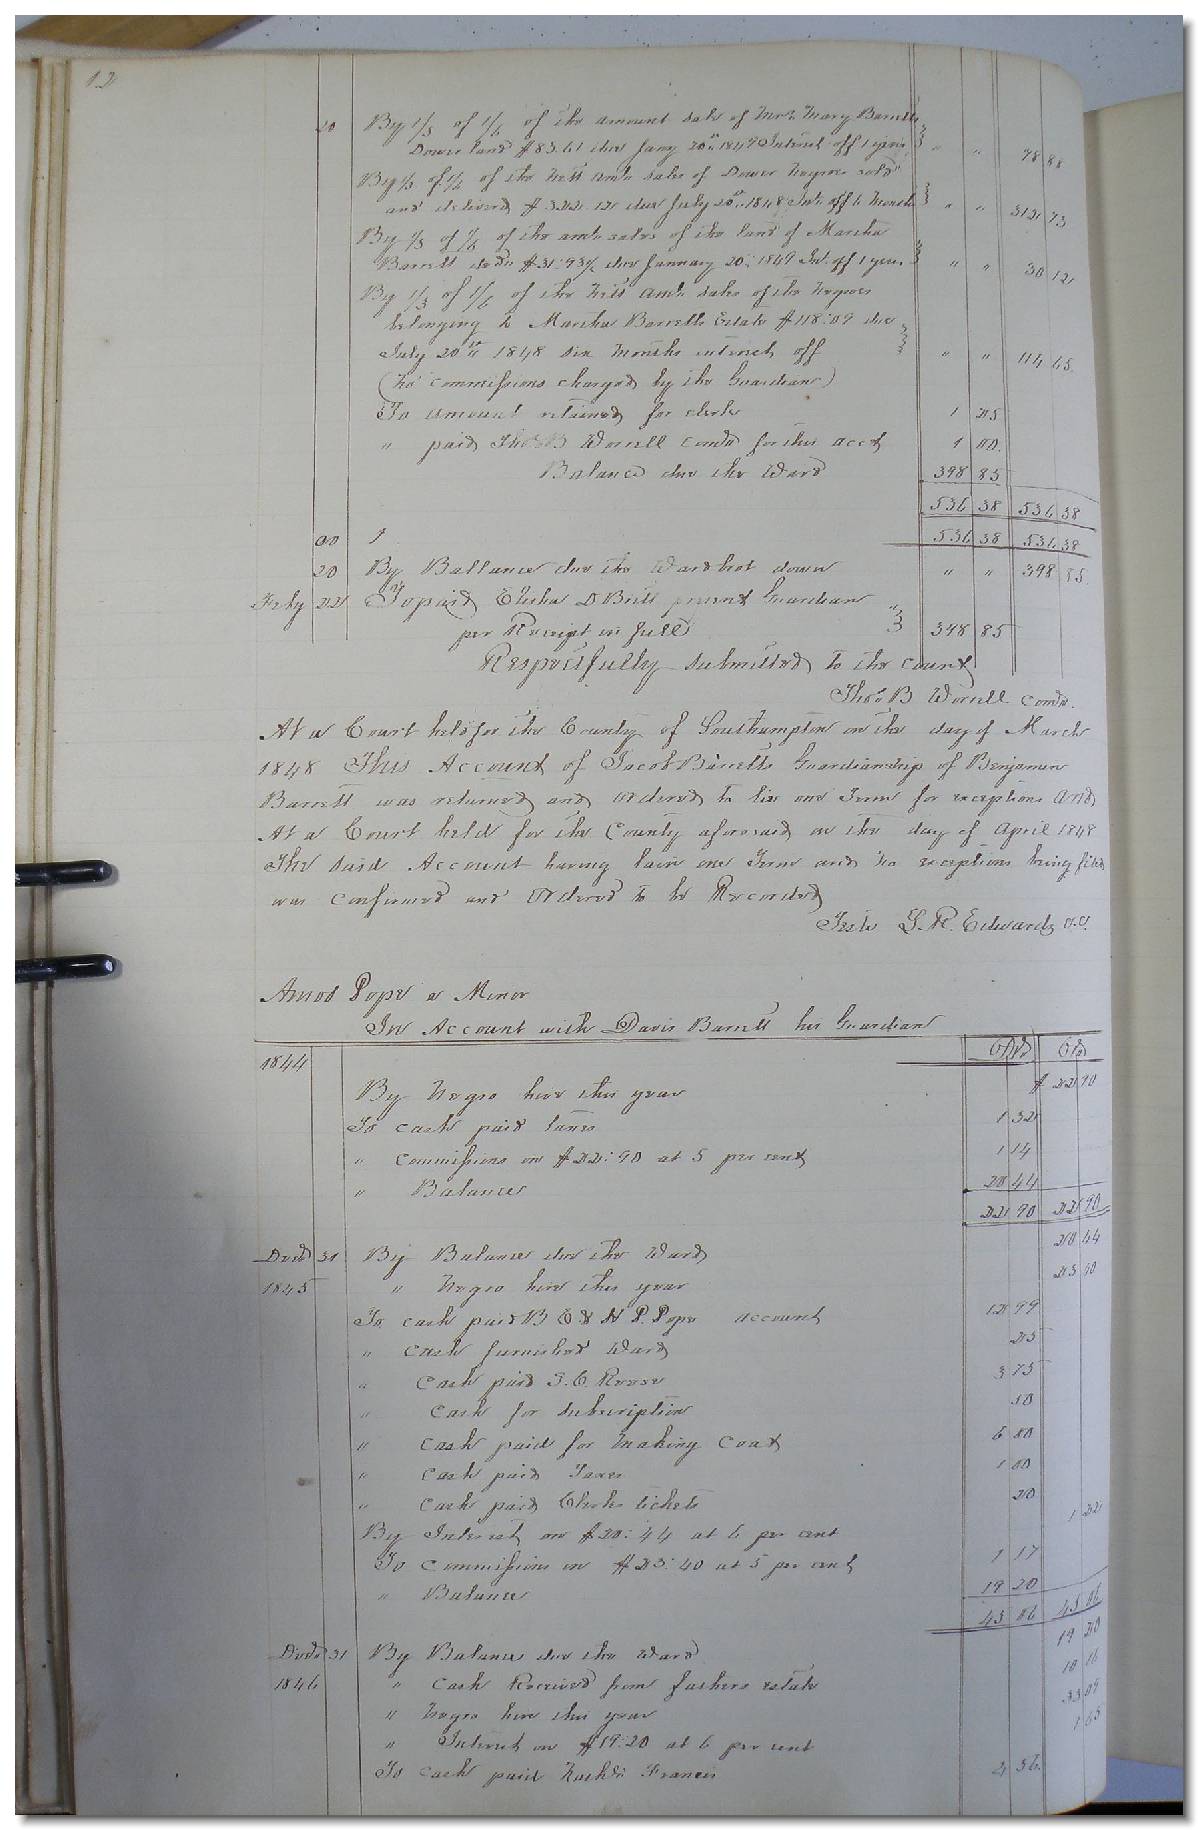 12
20 By 1/3 of 1/6 of the amount sale of Mrs Mary Barretts
Dower land $83.61 due Jany 20th 1849 Interest off 1 year " " 78 88
By 1/3 of 1/6 of the Nett amt sales of Dower Negroes sold
and delivered due July 20th 1848 Int off 6 Months " " 312 73
By 1/3 of 1/6 of the amt sales of the land of Martha
Barrett decd $31.93 1/2 due January 20th 1849 Int off 1 year " " 30 12
By 1/3 of 1/6 of the Nett amt sales of the Negroes
belonging to Martha Barretts Estate $118.09 due
July 20th 1848 six months interest off " " 114 65
(No commissions charged by the Guardian)
To amount retained for clerk 1 25
" paid Thos B Worrell Comr for this acct 1 00
Balance due the Ward 398 85
536 38 536 38
00 1 536 38 536 38
20 By Ballance due the Ward bot down " " 398 85
Feby 22 To paid Elisha D Britt present Guardian
per Receipt in full 398 85
Respectfully submitted to the Court
Thos B Worrell Comr
At a Court held for the County of Southampton on the day of March
1848 This Account of Jacob Barretts Guardianship of Benjamin
Barrett was returned and Ordered to lie one Term for exceptions And
At a Court held for the County aforesaid on the day of April 1848
The said Account having lain one Term and no exceptions being filed
was confirmed and Ordered to be Recorded
Teste L. R. Edwards c.c.
Amos Pope a Minor
In Account with Davis Barrett his Guardian
1844 Dr Cr
By Negro hire this year $ 22 90
To cash paid taxes 1 32
" Commissions on $22.90 at 5 per cent 1 14
" Balance 20 44
22 90 22 90
Decr 31 By Balance due the Ward 20 44
1845 " Negro hire this year 23 40
To cash paid B E & H P. Pope account 12 99
" Cash furnished Ward 25
" Cash paid J. C. Reese 3 75
" Cash for subscription 50
" Cash paid for making Coat 6 00
" Cash paid Taxes 1 00
" Cash paid Clerks tickets 20
By Interest on $20.44 at 6 per cent 1 22
To Commissions on $23.40 at 5 per cent 1 17
" Balance 19 20
45 06 45 06
Decr 31 By Balance due the Ward 19 20
1846 " Cash Received from fathers estate 10 16
" Negro hire this year 33 09
" Interest on $19.20 at 6 per cent 1 65
To cash paid Francis 2 56